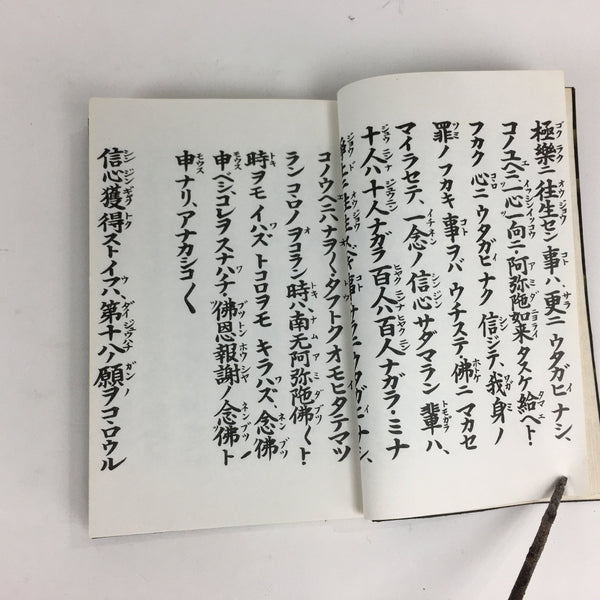 極樂ニ往生セン事ハ、更ニウタガヒナシ、
コノユヘニ一心一向ニ阿弥陀如来タスケ給ヘト・
フカク心ニウタガヒナク信ジテ、我身ノ
罪ノフカキ事ヲバウチステ佛ニマカセ
マイラセテ、一念ノ信心サダマラン輩ハ、
十人ハ十人ナガラ百人ハ百人ナガラ・ミナ
コノウヘニハナヲ〱タフトクオモヒタテマツ
ランコロノヲコラン時ハ、南无阿弥陀佛〱ト・
時ヲモイハズ、トコロヲモキラハズ、念佛
申ベシ、コレヲスナハチ、佛恩報謝ノ念佛ト
申ナリ、アナカシコ〱
信心獲得ストイフハ、第十八ノ願ヲコ、ロウル